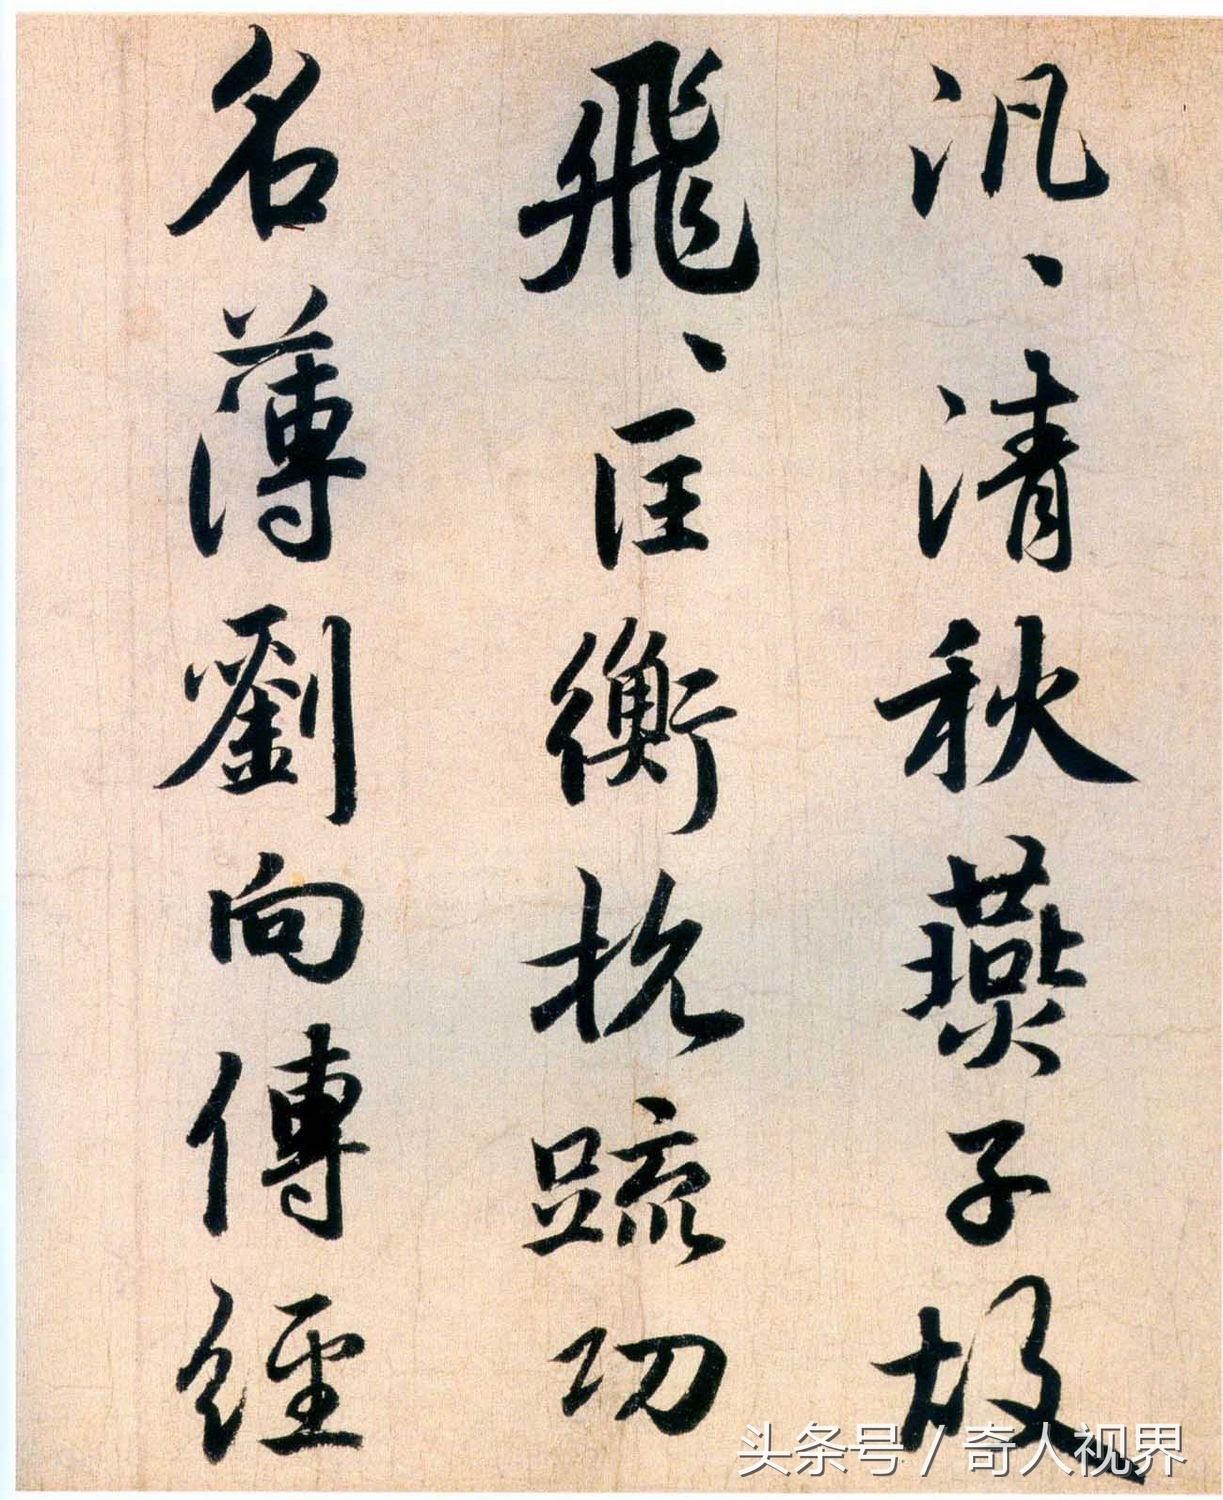 汎、清秋燕子故
飛、匡衡抗䟽功
名薄劉向傳經
头条号 / 奇人视界